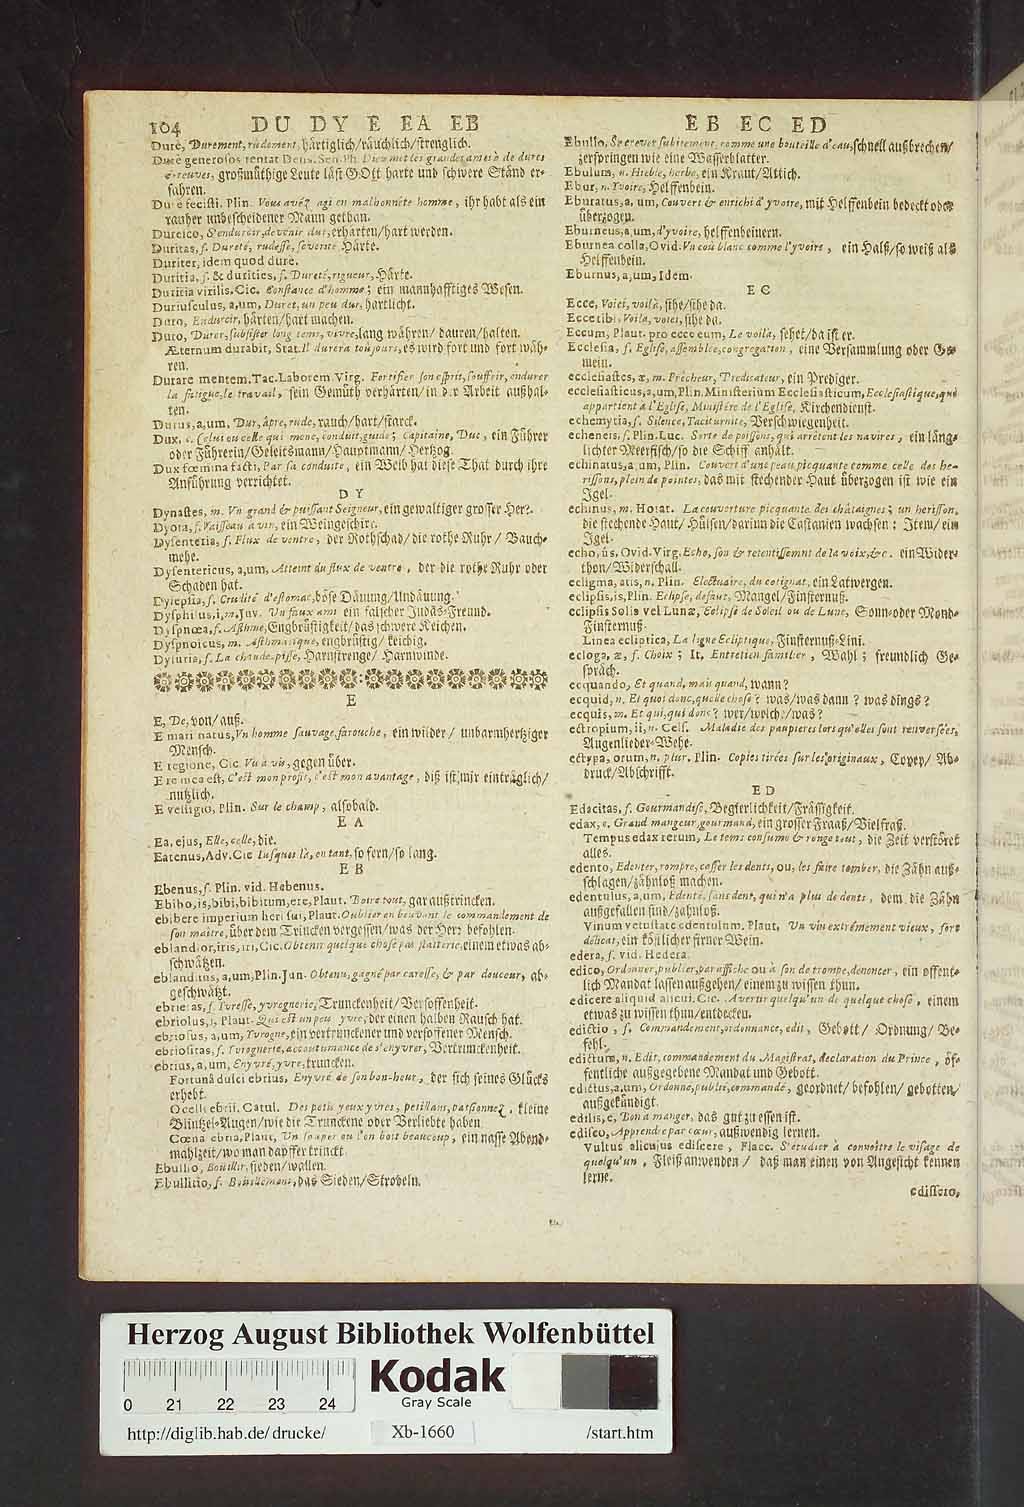 104 DU DY E EA EB
Durè, Durement, rudement, härtiglich/räuchlich/strenglich.
Durè generosos tentat Deus. Sen. Ph. Dieu met les grandes ames à de dures
épreuves, großmüthige Leute läst GOtt harte und schwere Ständ er-
fahren.
Dure fecisti. Plin. Vous avéz agi en malhonnête homme, ihr habt als ein
rauher unbescheidener Mann gethan.
Duresco, S'endurcir, devenir dur, erharten/hart werden.
Duritas, f. Dureté, rudesse, severité Härte.
Duriter, idem quod durè.
Duritia, f. & durities, f. Dureté, rigueur, Härte.
Duritia virilis. Cic. Constance d'homme; ein mannhafftiges Wesen.
Duriusculus, a, um, Duret, un peu dur, härtlicht.
Duro, Endurcir, härten/hart machen.
Duro, Durer, subsister long tems, vivre, lang währen/ dauren/halten.
Æternum durabit, Stat. Il durera toujours, es wird fort und fort wäh-
ren.
Durare mentem. Tac. Laborem. Virg. Fortifier son esprit, souffrir, endurer
la fatigue, le travail, sein Gemüth verhärten/in der Arbeit außhal-
ten.
Durus, a, um, Dur, âpre, rude, rauch/hart/starck.
Dux, c. Celui ou celle qui mene, conduit, guide; Capitaine, Duc, ein Führer
oder Führerin/Geleitsmann/Hauptmann/Hertzog.
Dux fœmina facti, Par sa conduite, ein Weib hat diese That durch ihre
Anführung verrichtet.
DY
Dynastes, m. Vn grand & puissant Seigneur, ein gewaltiger grosser Herr.
Dyota, f. Vaisseau à vin, ein Weingeschirr.
Dysenteria, f. Flux de ventre, der Rothschad/die rothe Ruhr / Bauch-
wehe.
Dysentericus, a, um, Atteint du flux de ventre, der die rothe Ruhr oder
Schaden hat.
Dyspepsia, f. Crudité d'estomac, böse Däuung/Undäuung.
Dysphilus, i, m. Juv. Un faux ami ein falscher Judas-Freund.
Dyspnœa, f. Asthme, Engbrüstigkeit/das schwere Keichen.
Dyspnoicus, m. Asthmatique, engbrüstig/ keichig.
Dysuria, f. La chaude-pisse, Harnstrenge/ Harnwinde.
E
E, De, von/auß.
E mari natus, Vn homme sauvage, farouche, ein wilder/ unbarmhertziger
Mensch.
E regione, Cic. Vis à vis, gegen über.
E re mea est, C'est mon profit, c'est mon avantage, diß ist mir einträglich/
nutzlich.
E vestigio, Plin. Sur le champ, alsobald.
EA
Ea, ejus, Elle, celle, die.
Eatenus, Adv. Cic Jusques là, en tant, so fern/so lang.
EB
Ebenus, f. Plin. vid. Hebenus.
Ebibo, is, bibi, bibitum, ere, Plaut. Boire tout, gar außtrincken.
ebibere imperium heri sui, Plaut. Oublier en beuvant le commandement de
son maître, über dem Trincken vergessen/was der Herr befohlen.
eblandior, iris, iri, Cic. Obtenir quelque chose par flatterie, einem etwas ab-
schwätzen.
eblanditus, a, um, Plin. Jun. Obtenu, gagné par caresse, & par douceur, ab-
geschwätzt.
ebrietas, f. Yvresse, yvrognerie, Trunckenheit/Versoffenheit.
ebriolus, i, Plaut. Qui est un peu yvre, der einen halben Rausch hat.
ebriosus, a, um, Yvrogne, ein vertrunckener und versoffener Mensch.
ebriositas, f. Yvrognerie, accoutumance de s'enyvrer, Vertrunckenheit.
ebrius, a, um, Enyvré, yvre, truncken.
Fortunâ dulci ebrius, Enyvré de son bon-heur, der sich seines Glücks
erhebt.
Ocelli ebrii. Catul. Des petis yeux yvres, petillans, passionnez, kleine
Blintzel-Augen/wie die Trunckene oder Verliebte haben
Cœna ebria, Plaut, Un souper où l'on boit beaucoup, ein nasse Abend-
mahlzeit/wo man dapffer trinckt.
Ebullio, Bouillir, sieden/wallen.
Ebullitio, f. Bouillement, das Sieden/Strodeln.
EB EC ED
Ebullo, Se crever subitement, comme une bouteille d'eau, schnell außbrechen/
zerspringen wie eine Wasserblatter.
Ebulum, n. Hieble, herbe, ein Kraut/Attich.
Ebur, n. Yvoire, Helffenbein.
Eburatus, a, um, Couvert & enrichi d'yvoire, mit Helffenbein bedeckt oder
überzogen.
Eburneus, a, um, d'yvoire, helffenbeinern.
Eburnea colla, Ovid. Vn coû blanc comme l'yvoire, ein Halß/so weiß als
Helffenbein.
Eburnus, a, um, Idem.
EC
Ecce, Voici, voilà, sihe/sihe da.
Ecce tibi, Voila, voici, sihe da.
Eccum, Plaut. pro ecce eum, Le voilà, sehet/da ist er.
Ecclesia, f. Eglise, assemblée, congregation, eine Versammlung oder Ge-
mein.
ecclesiastes, æ, m. Prêcheur, Predicateur, ein Prediger.
ecclesiasticus, a, um, Plin. Ministerium Ecclesiasticum, Ecclesiastique, qui
appartient à l'Eglise, Ministére de l'Eglise, Kirchendienst.
echemytia, f. Silence, Taciturnité, Verschwiegenheit.
echeneis, f. Plin. Luc. Sorte de poissons, qui arrêtent les navires, ein läng-
lichter Meerfisch/so die Schiff anhält.
echinatus, a, um, Plin. Couvert d'une peau picquante comme celle des he-
rissons, plein de pointes, das mit stechender Haut überzogen ist wie ein
Igel.
echinus, m. Horat. La couverture picquante des châtaignes; un herisson,
die stechende Haut/ Hülsen/darinn die Castanien wachsen: Item/ein
Igel.
echo, ûs, Ovid. Virg. Echo, son & retentissemnt de la voix, &c. ein Wider-
thon/Widerschall.
ecligma, atis, n. Plin. Electuaire, du cotignat, ein Latwergen.
eclipsis, is, Plin. Eclipse, defaut, Mangel/Finsternuß.
eclipsis Solis vel Lunæ, Eclipse de Soleil ou de Lune, Sonn-oder Mond-
Finsternuß.
Linea ecliptica, La ligne Ecliptique, Finsternuß-Lini.
ecloga, æ, f. Choix; It. Entretien familier, Wahl; freundlich Ge-
spräch.
ecquando, Et quand, mais quand, wann?
ecquid, n. Et quoi donc, quelle chose? was/was dann? was dings?
ecquis, m. Et qui, qui donc? wer/welcher/was?
ectropium, ii, n. Cels. Maladie des paupieres lors qu'elles sont renversées,
Augenlieder-Wehe.
ectypa, orum, n. plur. Plin. Copies tirées sur les originaux, Copey/ Ab-
druck/Abschrifft.
ED
Edacitas, f. Gourmandise, Begierlichkeit/Frässigkeit.
edax, c. Grand mangeur, gourmand, ein grosser Fraaß/Vielfraß.
Tempus edax rerum, Le tems consume & ronge tout, die Zeit verstöret
alles.
edento, Edenter, rompre, casser les dents, ou, les faire tomber, die Zähn auß-
schlagen/zähnloß machen.
edentulus, a, um, Edenté, sans dent, qui n'a plus de dents, dem die Zähn
außgefallen sind/zahnloß.
Vinum vetustate edentulum. Plaut, Un vin extrémement vieux, fort
délicat, ein köstlicher firner Wein.
edera, f. vid. Hedera.
edico, Ordonner, publier, par affiche ou à son de trompe, denoncer, ein offent-
lich Mandat lassen außgehen/einem zu wissen thun.
edicere aliquid alicui. Cic. Avertir quelqu'un de quelque chose, einem
etwas zu wissen thun/entdecken.
edictio, f. Commandement, ordonnance, edit, Gebott/ Ordnung/ Be-
fehl.
edictum, n. Edit, commandement du Magistrat, declaration du Prince, öf-
fentliche außgegebene Mandat und Gebott.
edictus, a, um, Ordonné, publié, commandé, geordnet/befohlen/gebotten/
außgekündigt.
edilis, e, Bon à manger, das gut zu essen ist.
edisco, Apprendre par cœur, außwendig lernen.
Vultus alicujus ediscere, Flacc. S'étudier à connoître le visage de
quelqu'un, Fleiß anwenden/ daß man einen von Angesicht kennen
lerne.
edissero,
Herzog August Bibliothek Wolfenbüttel
0 21 22 23 24
Kodak
Gray Scale
http://diglib.hab.de/drucke/ Xb-1660 /start.htm